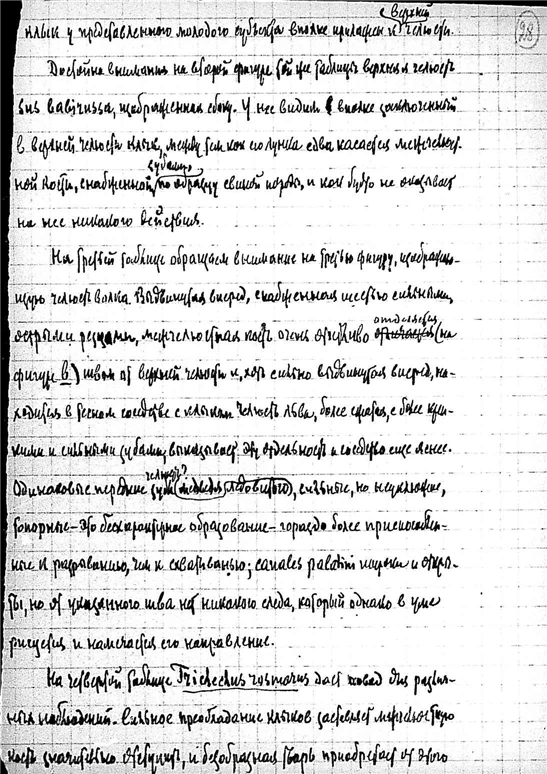 28
верхней
клык у представленного молодого субъекта вполне прилажен к челюсти.
Достойна внимания на второй фигуре той же таблицы верхняя челюсть
sus babirussa, изображенная сбоку. У нее видим вполне заключенный
в верхней челюсти клык, между тем как его лунка едва касается межчелюст-
зубами,
ной кости, снабженной по образцу свиной породы, и как будто не оказывает
на нее никакого действия.
На третьей таблице обращаем внимание на третью фигуру, изображаю-
щую челюсть волка. Выдвинутая вперед, снабженная шестью сильными,
отделяется
острыми резцами, межчелюстная кость очень отчетливо (на
фигуре b) швом от верхней челюсти и, хотя сильно выдвинутая вперед, на-
ходится в тесном соседстве с клыком. Челюсть льва, более сжатая, с более креп-
кими и сильными зубами, выказывает эту отдельность и соседство еще яснее.
челюсть?
Одинаковые передние зубы медведя ледовитого), сильные, но неуклюжие,
топорные – это бесхарактерное образование – гораздо более приспособлен-
ные к разрыванию, чем к схватыванью; canales palatini широки и откры-
ты, но от указанного шва нет никакого следа, который однако в уме
рисуется и намечается его направление.
На четвертой таблице Trichechus rosmarus даст повод для различ-
ных наблюдений. Сильное преобладание клыков заставляет межчелюстную
кость значительно отступить, и безобразная тварь приобретает от этого